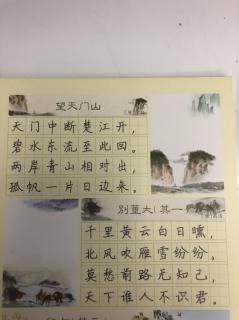 望天门山
天门中断楚江开，
碧水东流至此回。
两岸青山相对出，
孤帆一片日边来。
别董大(其一
千里黄云白日曛，
北风吹雁雪纷纷。
莫愁前路无知己，
天下谁人不识君。